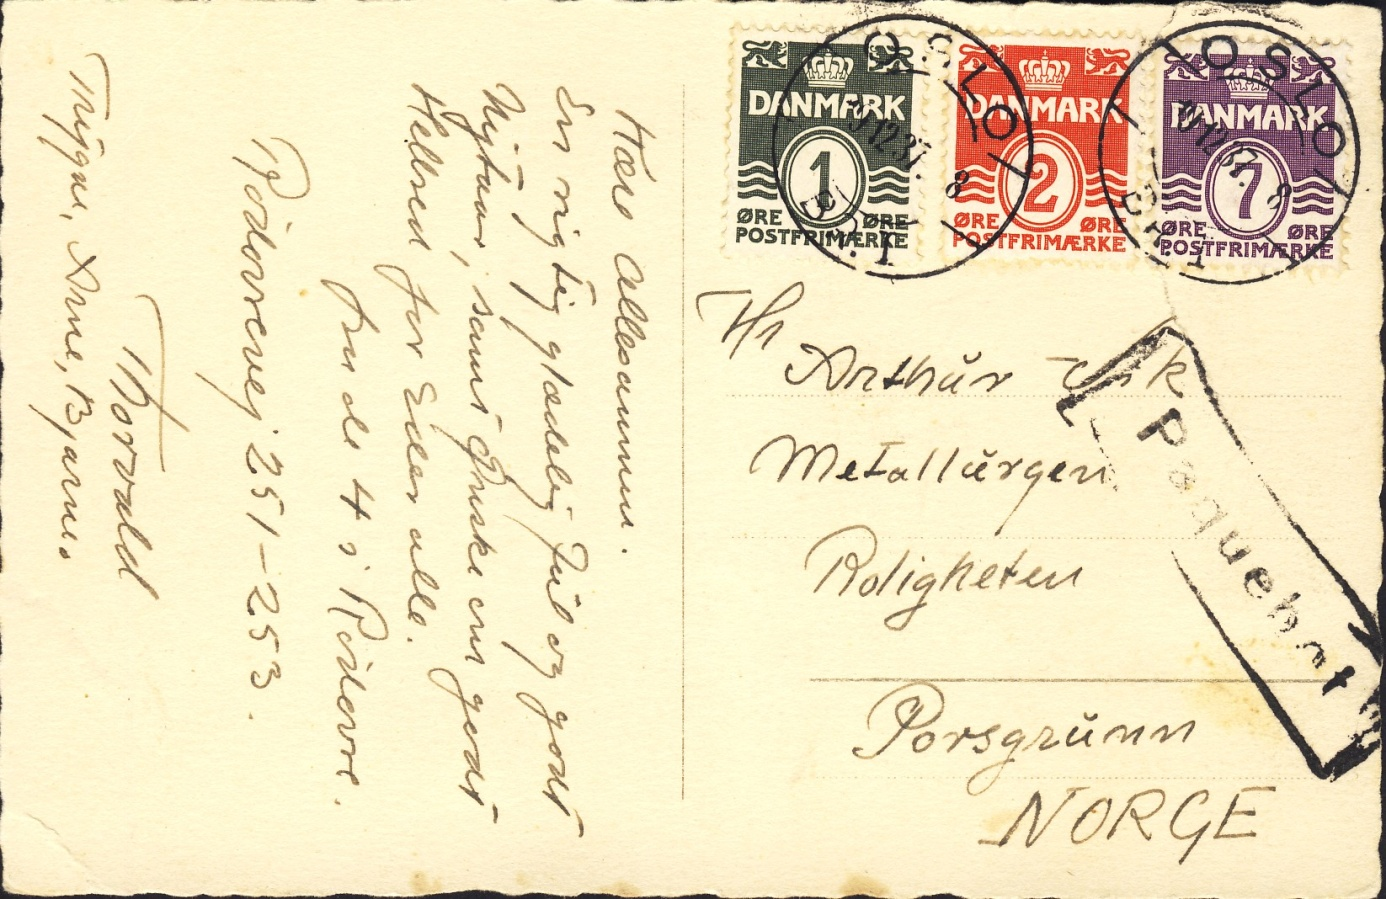 Kære Allesammen.
En rigtig glædelig Jul og godt
Nytaar, samt Ønske om godt
Helbred for Eder alle.
fra de 4 i Rödovre.
Rödovrevej 251-253.
Thorvald
Trygve, Arne, Bjarne.
DANMARK
1
ØRE ØRE
POSTFRIMÆRKE
DANMARK
2
ØRE ØRE
POSTFRIMÆRKE
DANMARK
7
ØRE ØRE
POSTFRIMÆRKE
OSLO
12 37. 8
OSLO
12 37. 8
Hr
Arthur
Metallurgen
Roligheten
Porsgrunn
NORGE
Paquebot